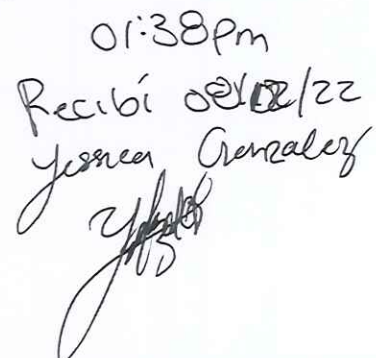 01:38pm
Recibí 02/12/22
Yessica Gonzalez